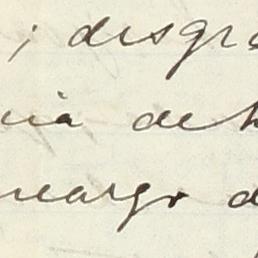 ; disgra
cia de
ncargo d